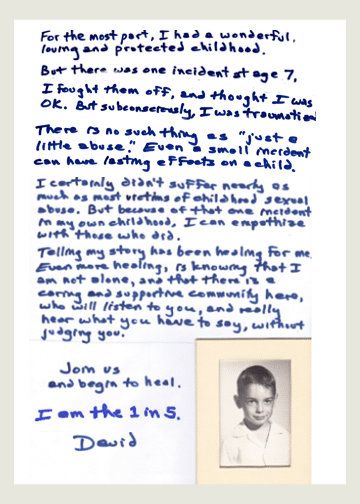 For the most part, I had a wonderful,
loving and protected childhood.
But there was one incident at age 7,
I fought them off, and thought I was
OK. But subconsciously, I was traumatized
There is no such thing as "just a
little abuse." Even a small incident
can have lasting effects on a child.
I certainly didn't suffer nearly as
much as most victims of childhood sexual
abuse. But because of that one incident
in my own childhood, I can empathize
with those who did.
Telling my story has been healing for me.
Even more healing, is knowing that I
am not alone, and that there is a
caring and supportive community here,
who will listen to you, and really
hear what you have to say, without
judging you.
Join us
and begin to heal.
I am the 1 in 5.
David